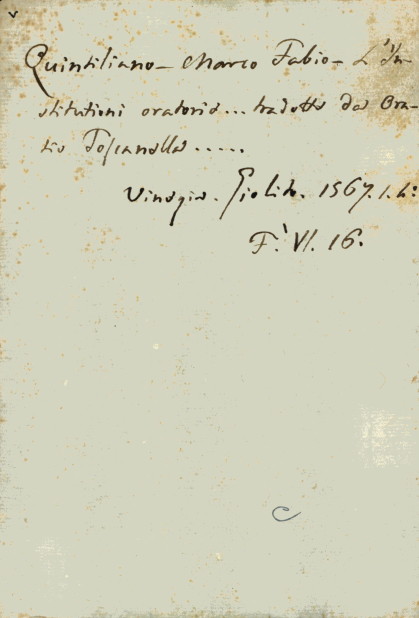 Quintiliano - Marco Fabio - L'In-
stitutioni oratorie... tradotte da Ora-
tio Toscanella.....
Vinegia. Giolito. 1567. 1. 4:
F.` VI. 16.